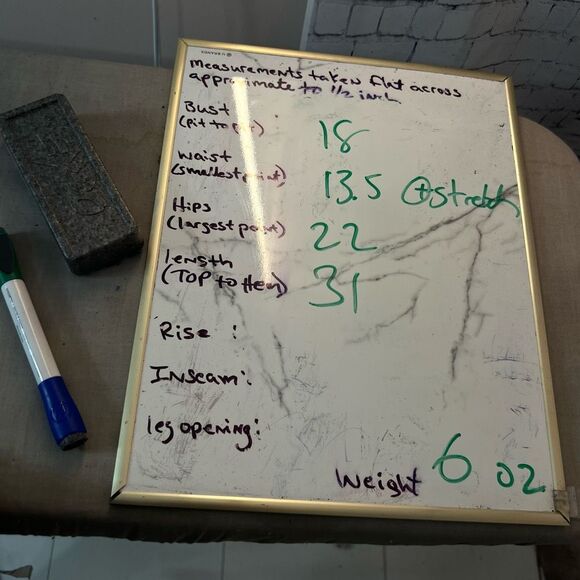 Measurements taken flat across
approximate to 1/2 inch
Bust :
(Pit to pit) 18
waist
(smallest point) 13.5 (+stretch
Hips
(largest point) 22
length
(TOP to Hem) 31
Rise :
Inseam:
leg opening:
Weight 6 oz